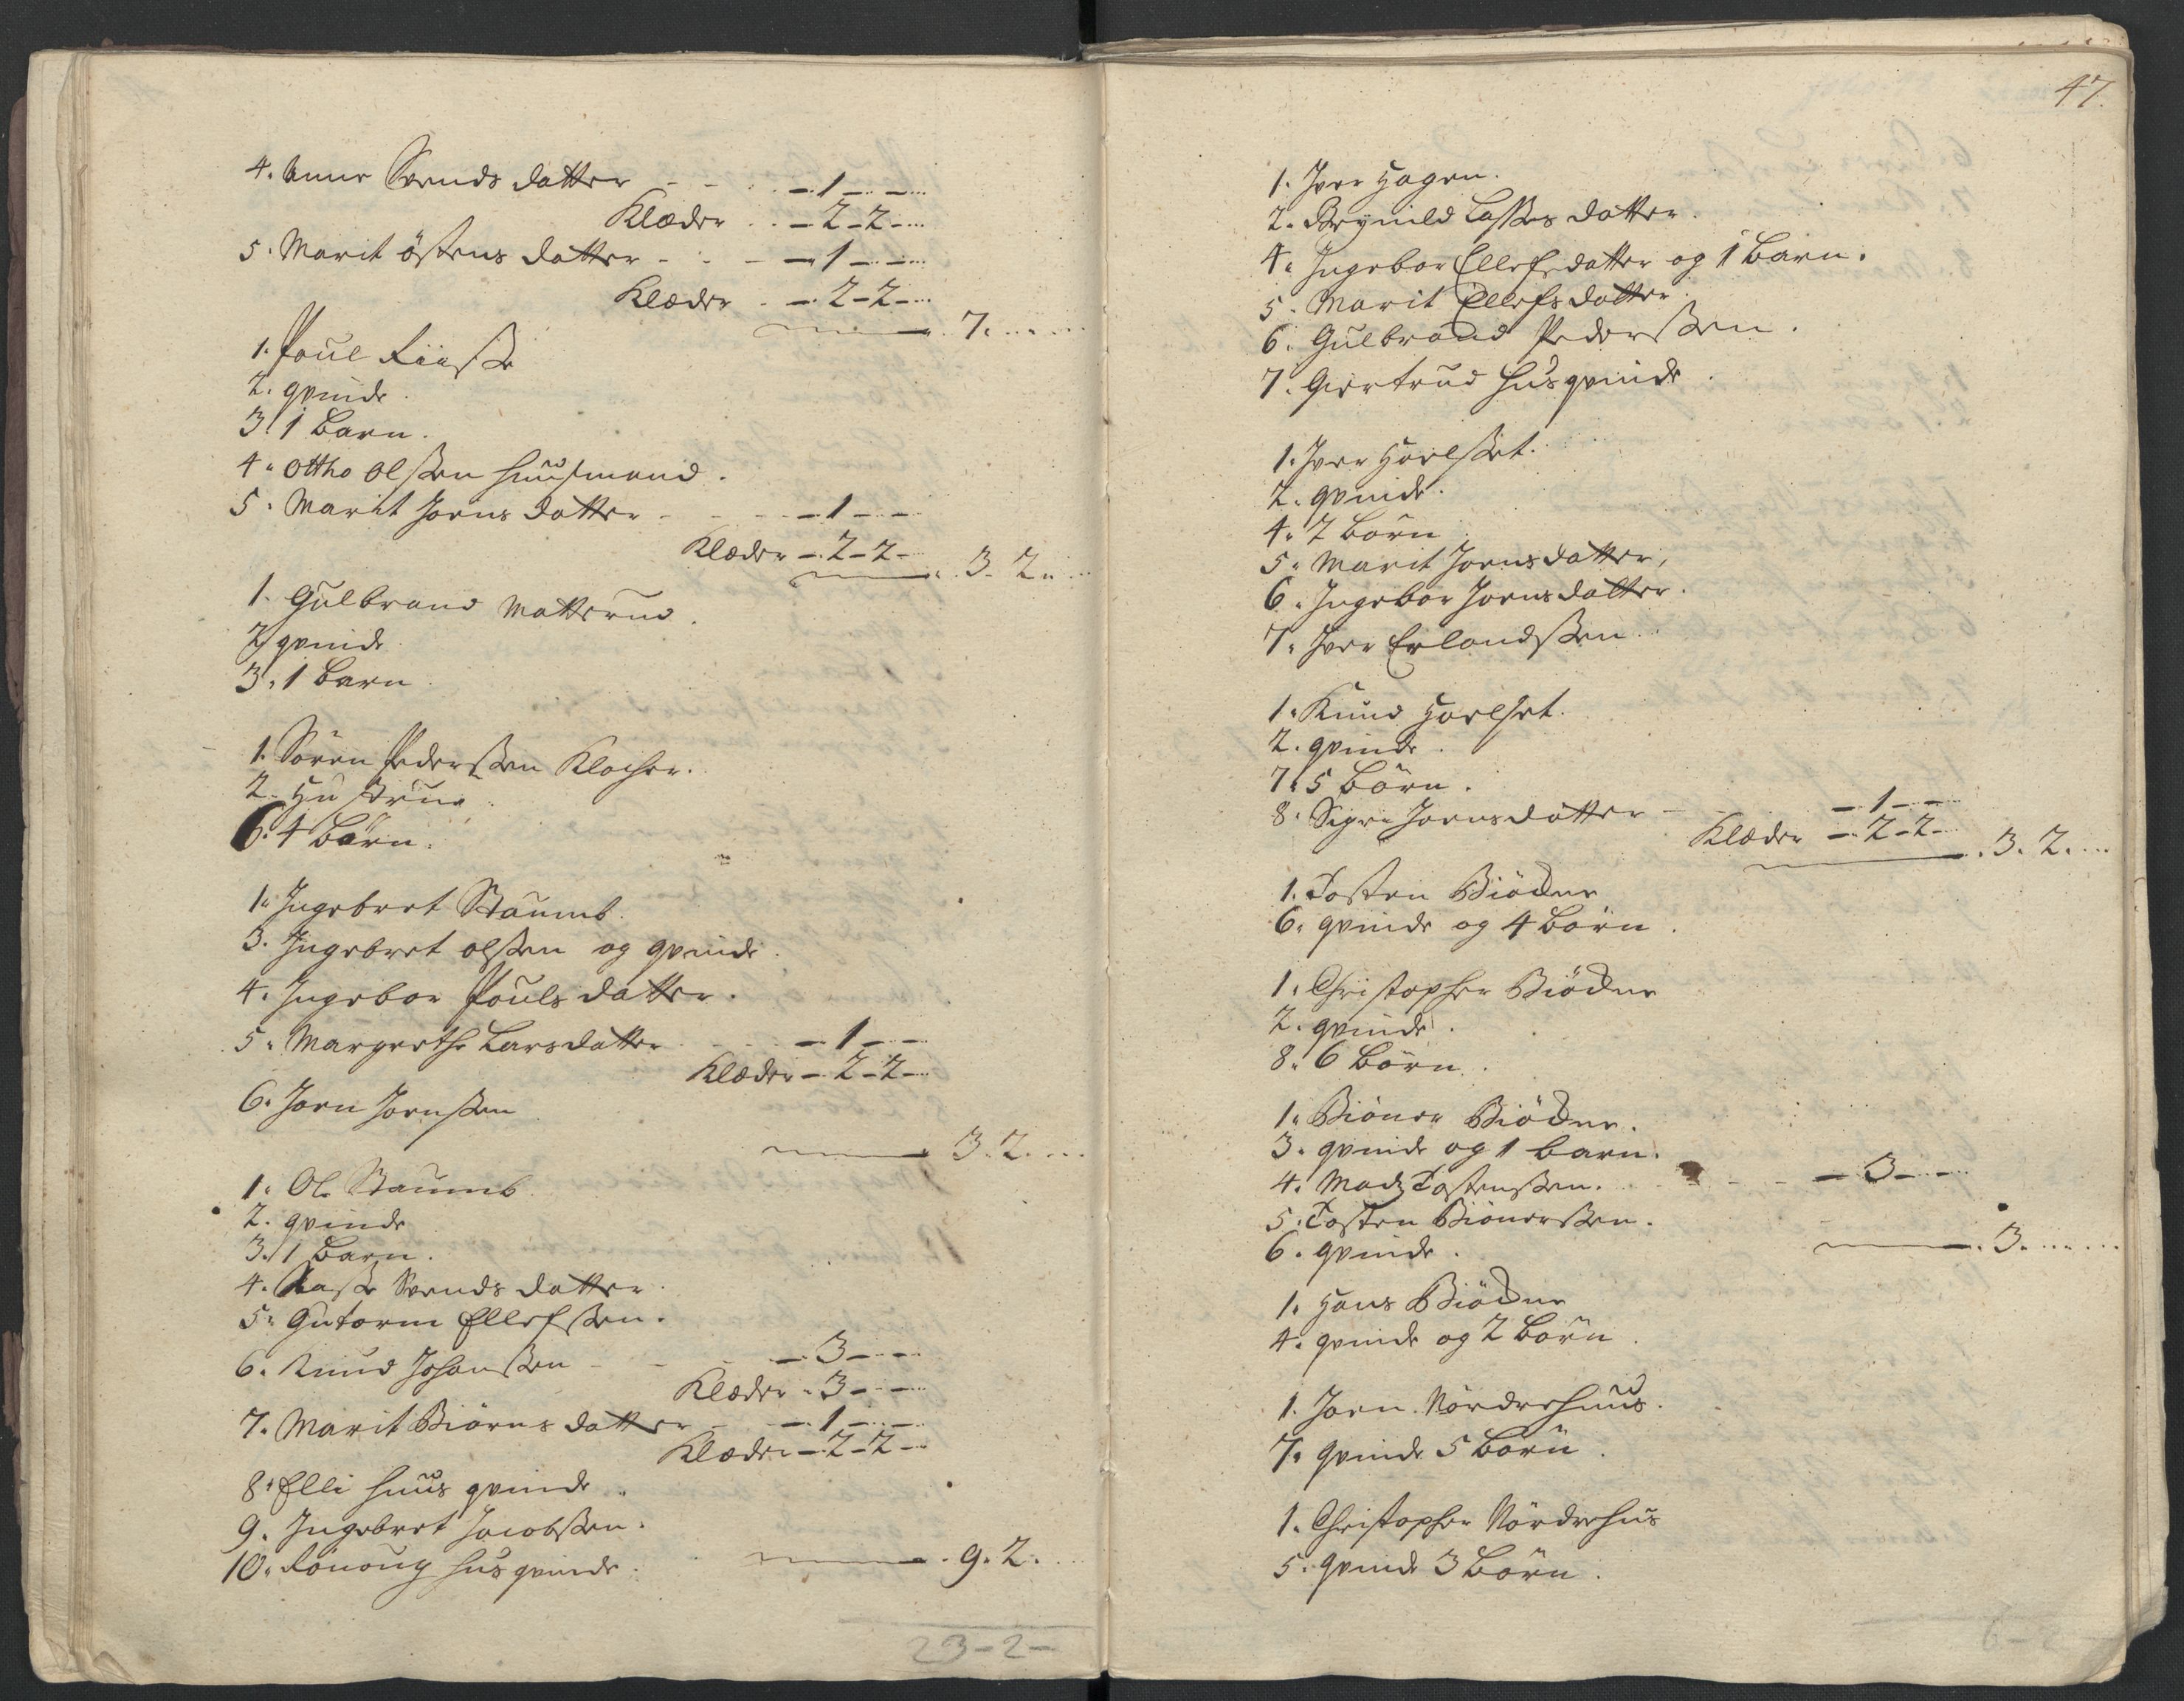 4. Anne Svends datter - - . . - 1 - - -
Klæder . . - 2 - 2 -
5. Marit östens datter - - - 1 - - -
Klæder . - 2 - 2 -
7. . . .
1. Poul
2. qvinde.
3. 1 barn.
4. Ottho Olssen huusmand.
5. Marit Joens datter - - - 1 - - -
Klæder - 2 - 2 -
3. 2. . .
1. Gulbrand Matterud.
2. qvinde
3. 1 barn.
1. Sören Pederssen Klocher.
2. Hustrue.
6. 4 börn.
1. Ingebret Staumb.
3. Ingebret olssen og qvinde.
4. Ingebor Pouls datter.
5. Margrethe Larsdatter - 1 - - -
Klæder - 2 - 2 -
6. Joen Joenssen
3. 2. . .
1. Ole Staumb
2. qvinde
3. 1 barn.
4. Aase Svends datter.
5. Gutorm Ellefssen.
6. Knud Johanssen - - - 3 - - -
Klæder - 3 - - -
7. Marit Biörns datter - - 1 - - -
Klæder - 2 - 2 -
8. Elli huus qvinde.
9. Ingebret Jacobssen.
10. Rönoug husqvinde.
9. 2. . .
23 - 2 -
47.
1. Iver Hagen.
2. Brynild Lasses datter.
4. Ingebor Ellefsdatter og 1 barn.
5. Marit Ellefsdatter
6. Gulbrand Pederssen.
7. Giertrud husqvinde.
1. Iver Horlsset.
2. qvinde.
4. 2 börn
5. Marit Joensdatter,
6. Ingebor Joensdatter.
7. Iver Erlandssen
1. Knud Horlset.
2. qvinde.
7. 5 börn.
8. Sigri Joensdatter - - 1 - - -
Klæder - 2 - 2 -
3. 2. . .
1. Tosten Biödne
6. qvinde og 4 börn.
1. Christopher Biödne
2. qvinde.
8. 6 börn.
1. Biöner Biödne.
3. qvinde og 1 barn.
4. Madz Tostenssen. - - - 3 - - -
5. Tosten Biönerssen.
6. qvinde.
3. . . .
1. Hans Biödne
4. qvinde og 2 börn.
1. Joen Nördrehuus.
7. qvinde 5 börn.
1. Christopher Nördrehus
5. qvinde 3 börn.